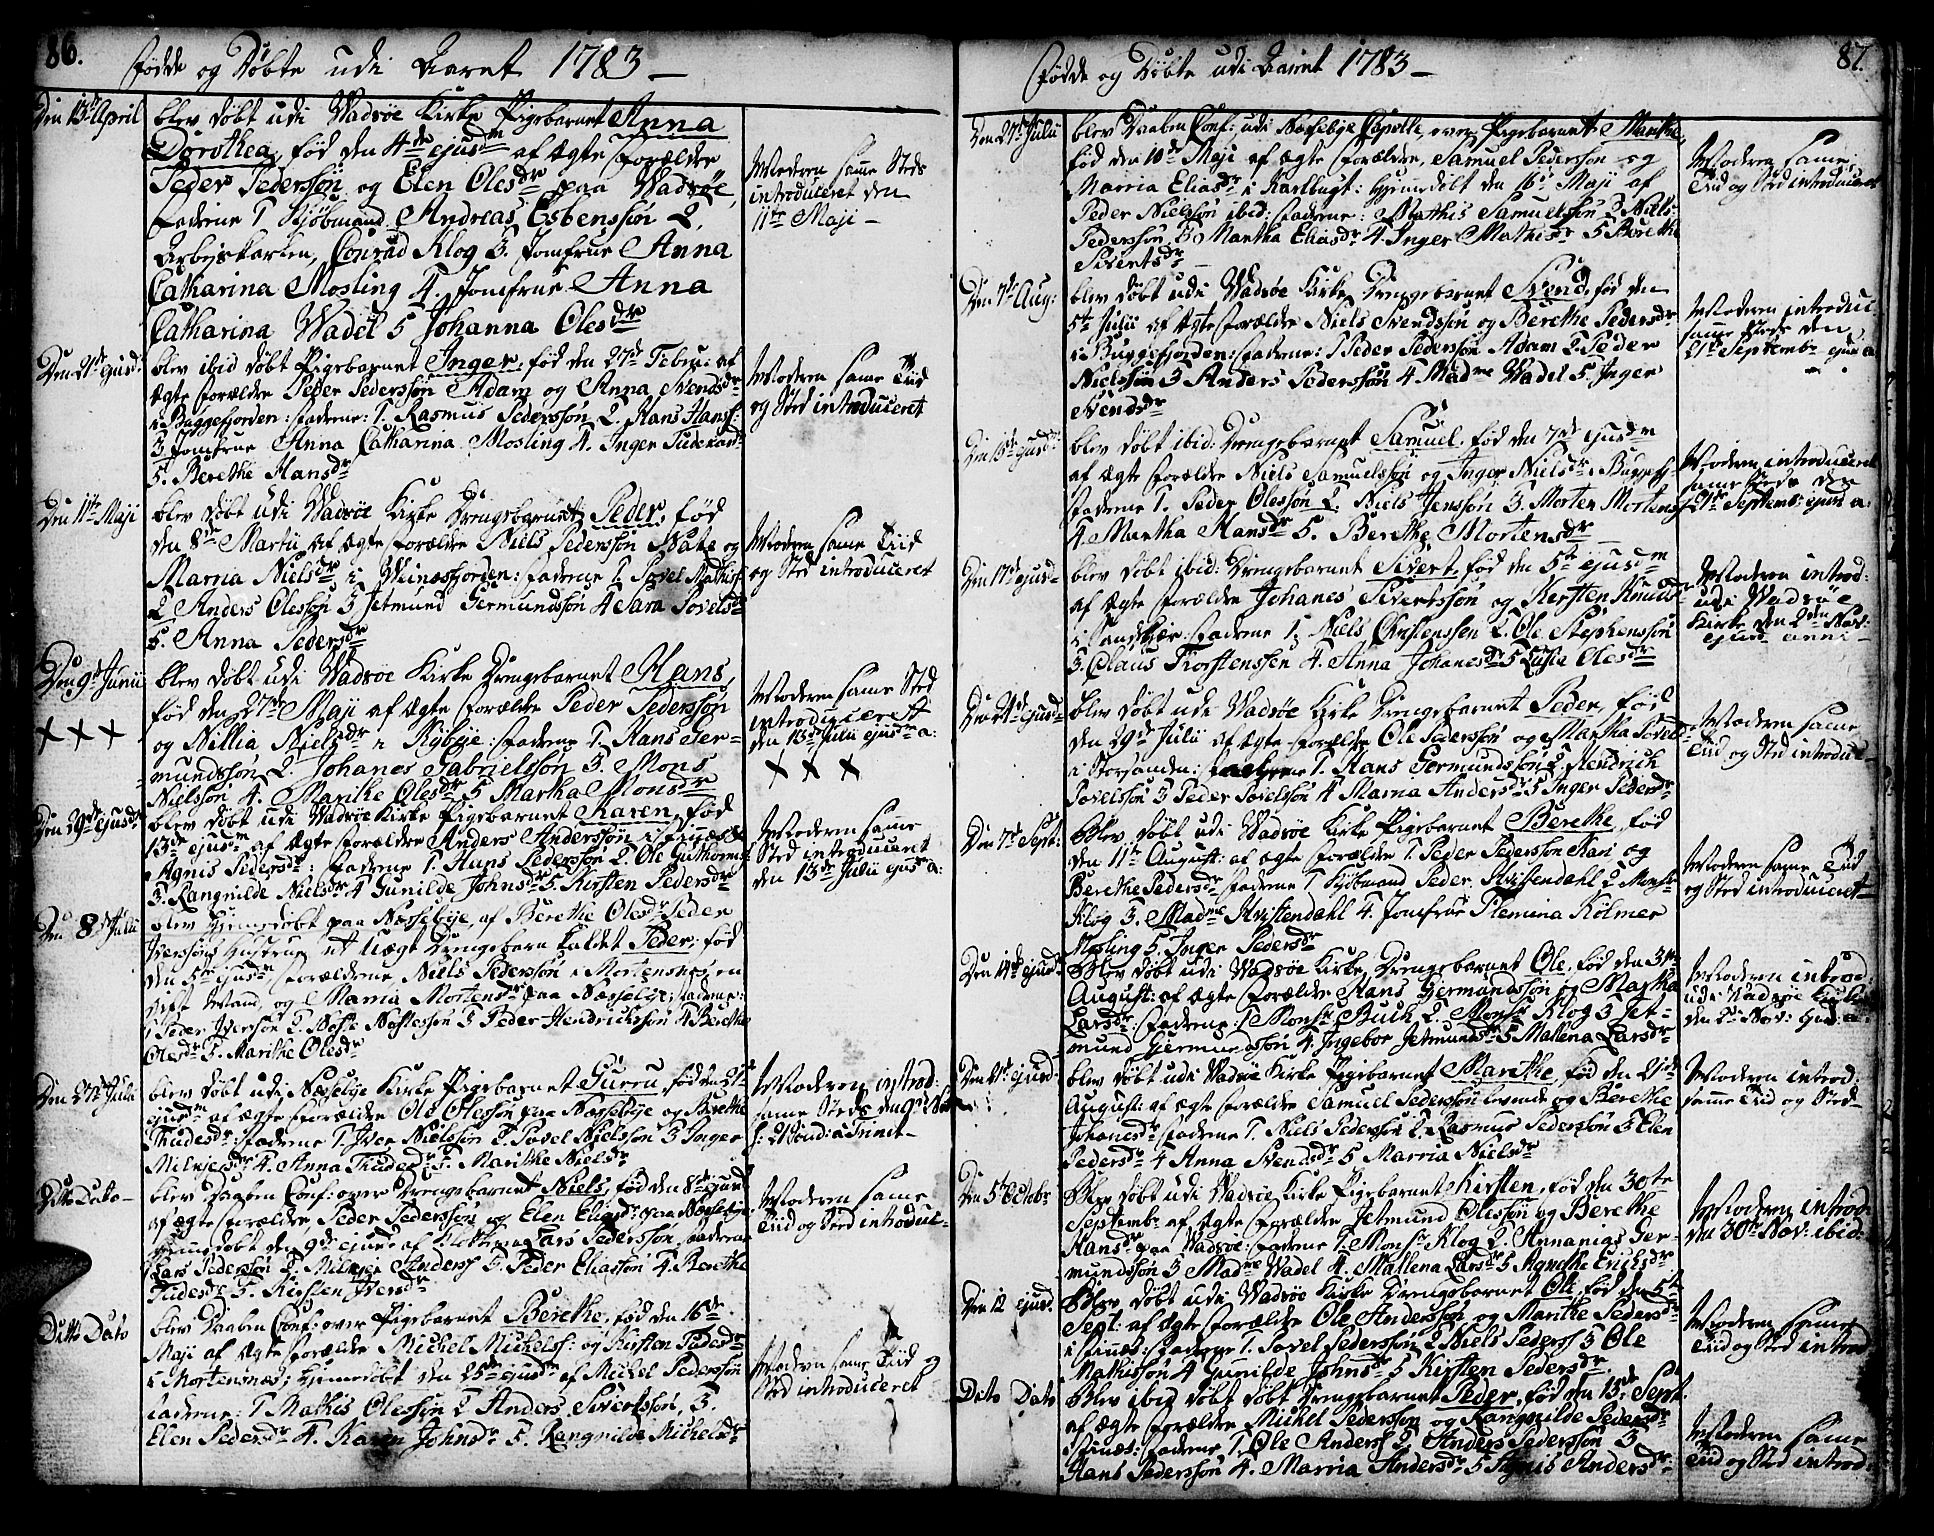 86.
Fødde og Døbte udi Aaret 1783 —
Den 13de April
blev døbt udi Wadsöe Kirke Pigebarnet Anna
Dorothea, fød den 4de ejusdm af Ægte Forældre
Peder Pederssön og Elen Olesdr paa Wadsöe,
Fadderne 1 Kjöbmand Andreas Esbenssön 2,
Arbejskarlen, Conrad Klog 3. Jomfrue Anna
Catharina Mosling 4. Jomfrue Anna
Catharina Wadel 5 Johanna Olesdr
Moderen same Steds
introduceret den
11te Maji —
Den 21de ejusd:
blev ibid døbt Pigebarnet Inger, fød den 27de Febru: af
Ægte Forældre Peder Pederssön Adam og Anna Svendsdr
i Buggefjorden: Fadderne: 1. Rasmus Pederssön 2. Hans Hanss:
3 Jomfrue Anna Catharina Mosling 4. Inger
5. Berethe Hansdr
Moderen same Tiid
og Sted introduceret
Den 11te Maji
blev døbt udi Wadsöe Kirke Drengebarnet Peder, fød
den 8de Martii af Ægte Forældre Niels Pederssön og
Marria Nielsdr i Fadderne 1. Povel Mathiss:
2 Anders Olessön 3 Jetmund Germundssön 4 Sara Povelsdr
5. Anna Pedersdr
Moderen same Tiid
og Sted introduceret
Den 9de Junii
x x x
blev døbt udi Wadsöe Kirke Drengebarnet Hans,
fød den 27de Maji af Ægte Forældre Peder Pederssön
og Nillia Nielsdr i Kybye: Fadderne 1. Hans Ger-
mundssön 2. Johanes Gabrielssön 3. Mons
Nielssön 4. Marithe Olesdr 5 Martha Monsdr
Moderen same Sted
introduceret
den 13de Julii ejusd a:
x x x
Den 29de ejusdm
blev døbt udi Wadsöe Kirke Pigebarnet Karen, fød
13de ejusdm af Ægte Forældre Anders Anderssön
Agnis Pedersdr: Fadderne 1. Hans Pederssön 2. Ole Guthorms:
3. Rangnilde Nielsdr 4 Gunilde Johnsdr 5. Kirsten Pedersdr
Moderen same
Sted introduceret
den 13de Julii ejusd a:
Den 8de Julii
blev Hjemedøbt paa Næssebye, af Berethe Olesdr Peder
Iverssöns Hustrue et Uægt Drengebarn kaldet Peder: fød
den 5te ejusdm Forældrene, Niels Pederssön i Mortensnes, en
gift Mand, og Marria Mortensdr paa Næssebye: Fadderne:
1 Peder Iverssön 2. 3 Peder Hendrickssön 4 Berethe
Olesdr 5. Marithe Olesdr
Den 27de Julii
blev døbt udi Næssebye Kirke Pigebarnet Gurru, fød den 21de
ejusdm af Ægte Forældre Ole Olessön paa Næssebye og Berethe
Tudesdr: Fadderne 1. Iver Nielssön 2. Povel Nielssön 3 Inger
4. Anna Tudesdr 5. Marithe Nielsdr
Moderen introd:
same Steds den
Sönd: a Trinit—
Ditto Dato —
blev Daaben Conf: over Drengebarnet Niels, fød den 8de ejusd
af Ægte Forældre, Peder Pederssön og Elen Eliasdr paa Næssebye:
Hjemedøbt den 9de ejusd af Lars Pederssön Fadderne
1 Lars Pederssön 2. Anderss 3. Peder Eliassön 4. Berethe
Tudesdr 5. Kirsten Iversdr
Moderen same
Tiid og Sted introduc—
Ditto Dato
blev Daaben Conf: over Pigebarnet Berethe, fød den 16de
Maji af Ægte Forældre Michel Michels: og Kirsten Pedersdr
i Mortensnæs; Hjemedøbt den 25de ejusd af Michel Pederssön
Fadderne: 1 Mathis Olessön 2 Anders Sivertssön, 3.
Elen Pedersdr 4. Karen Johnsdr 5. Rangnilde Michelsdr
Moderen same Tiid og
Sted introduceret
87.
Fødde og Døbte udi Aaret 1783 —
Den 27de Julii
blev Daaben Conf: udi Næssebye Capelle, over Pigebarnet Marithe,
fød den 10de Maji af Ægte Forældre, Samuel Pederssön og
Marria Eliasdr i Karlbugt: Hjemedøbt den 16de Maji af
Peder Nielssön ibid: Fadderne: 1 Mathis Samuelssön 2 Niels
Pederssön 3 Martha Eliasdr 4. Inger Mathisdr 5 Berethe
Sivertsdr
Moderen same
Tiid og Sted introduceret
Den 7de Aug:
blev døbt udi Wadsöe Kirke Drengebarnet Svend, fød den
5te Julii af Ægte Forældre Niels Svendssön og Berethe Pedersdr
i Buggefjorden: Fadderne: 1 Peder Pederssön Adam 2. Peder
Nielssön 3 Anders Pederssön 4 Madme Wadel 5. Inger
Svendsdr
Moderen introduc:
same Steds den
21de Septembr ejusd a:
Den 15de ejusdm:
blev døbt ibid: Drengebarnet Samuel, fød den 7de ejusdm
af Ægte Forældre Niels Samuelssön og Inger Nielsdr i Buggefj:
Fadderne 1. Peder Olessön 2. Niels Jenssön 3. Morten Mortens:
4. Martha Hansdr 5. Berethe Mortensdr
Moderen introduceret
same Steds den
21de Septemb: ejusd a:
Den 17de ejusd—
blev døbt ibid: Drengebarnet Sivert, fød den 5te ejusdm
af Ægte Forældre Johanes Sivertssön og Kersten Knudsdr
i Sandskjær: Fadderne 1. Niels Christenssen 2. Ole Stephenssön
3. Claus Thorstenssen 4. Anna Johanesdr 5 Lusia Olesdr
Moderen introd:
udi Wadsöe
Kirke den 2den Nov:
ejusd anni —
Den 24de ejusd—
blev døbt udi Wadsöe Kirke Drengebarnet Peder, fød
den 29de Julii af Ægte Forældre Ole Pederssön og Martha Povelsdr
i Storsanden: Fadderne 1. Hans Germundssön 2 Hendrich
Povelssön 3 Peder Povelssön 4 Marria Andersdr 5 Inger Pedersdr
Moderen same
Tiid og Sted introduc—
Den 7de Sept:
Blev døbt udi Wadsöe Kirke Pigebarnet Berethe, fød
den 11te August: af Ægte Forældre 1. Peder Pederssön Kari og
Berethe Pedersdr Fadderne 1 Kjöbmand Peder Kvistendahl 2 Monsr
Klog 3. Madme Kvistendahl 4. Jomfrue Flemina Kølmer
Mosling 5. Inger Pedersdr
Moderen same Tiid
og Sted introduceret —
Den 14de ejusd
Blev døbt udi Wadsöe Kirke Drengebarnet Ole, fød den 3die
August: af Ægte Forældre Hans Germundssön og Martha
Larsdr: Fadderne: 1 Monsr Buch 2. Monsr Klog 3 Jet-
mund Gjermundssön 4. Ingebor Jetmundsdr 5 Mallena Larsdr
Moderen introd
udi Wadsöe Kirke
den 2de Nov: ejusd a:
Den 21de ejusd—
blev døbt udi Wadsöe Kirke Pigebarnet Marithe, fød den 21de
August: af Ægte Forældre Samuel Pederssön og Berethe
Johanesdr Fadderne 1. Niels Pederssön 2. Rasmus Pederssön 3 Elen
Pedersdr 4 Anna Svendsdr 5 Marria Nielsdr
Moderen introd:
same Tiid og Sted—
Den 5te Octobr
Blev døbt udi Wadsöe Kirke Pigebarnet Kirsten, fød den 30te
Septembr af Ægte Forældre Jetmund Olessön og Berethe
Hansdr paa Wadsöe: Fadderne 1. Monsr Klog 2. Annanias Ger-
mundssön 3 Madme Wadel 4. Mallena Larsdr 5 Agnethe Erichsdr
Moderen introd
den 30te Nov: ibid:
Den 12 ejusd
Blev døbt udi Wadsöe Kirke Drengebarnet Ole, fød den 5te
Sept: af Ægte Forældre Ole Anderssön og Marithe Pedersdr
i Finæs: Fadderne 1. Povel Pederssön 2 Niels Pederss 3 Ole
Mathissön 4 Gunilde Johnsdr 5 Kirsten Pedersdr
Moderen same
Tiid og Sted introd
Dato Dato
Blev ibid døbt døbt Drengebarnet Peder, fød den 15de Sept:
af Ægte Forældre Michel Pederssön og Rangnilde Pedersdr
i Finæs: Fadderne 1. Ole Anderss 2 Anders Pederssön 3
Hans Pederssön 4. Marria Andersdr 5 Agnis Andersdr
Moderen same
Tiid og Sted introd: